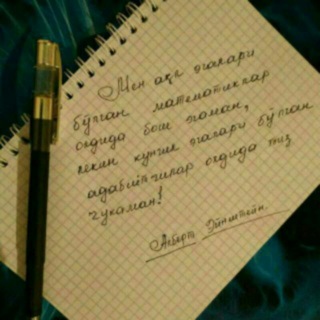 Мен ақл эгалари
бўлган математиклар
олдида бош эгаман,
лекин кўнгил эгалари бўлган
адабиётчилар олдида тиз
чўкаман!
Альберт Эйнштейн.